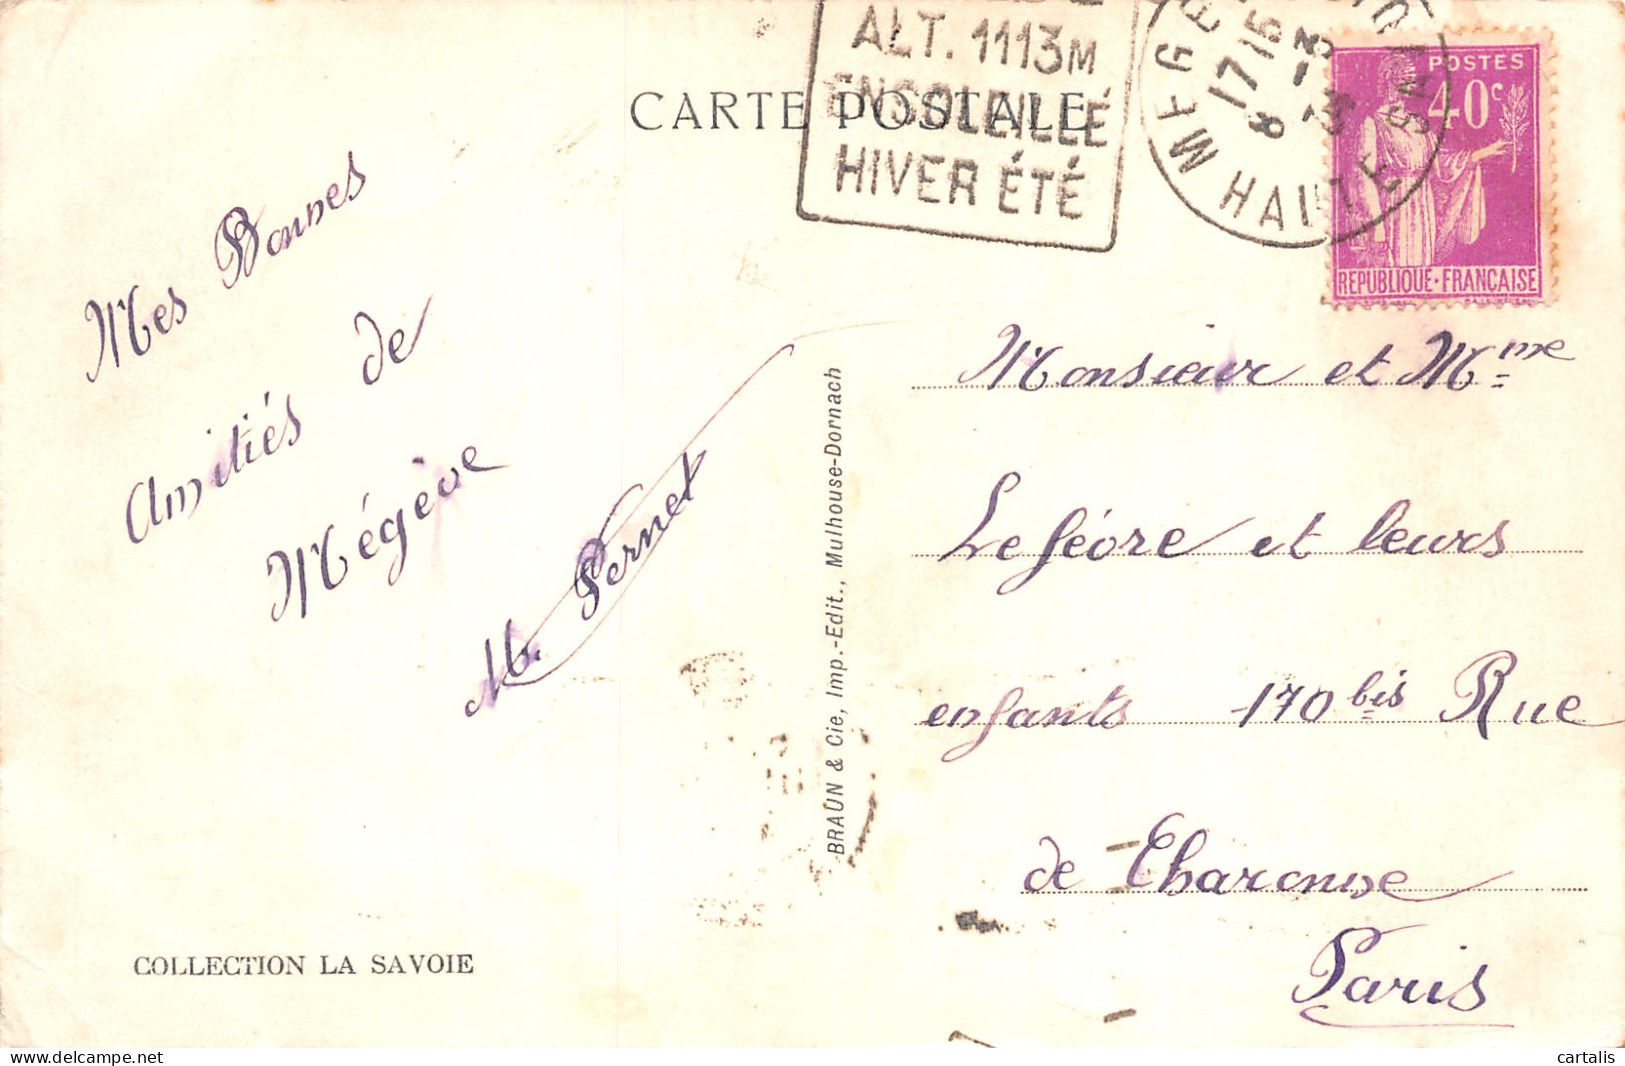 ALT. 1113M
ENSOLEILLÉ
HIVER ÉTÉ
MEGÈVE
17 15
8 -3
HAUTE SAVOIE
POSTES
40c
REPUBLIQUE·FRANÇAISE
CARTE POSTALE
Mes Bonnes
Amitiés de
Mégève
M. Pernet
BRAUN & Cie, Imp.-Edit., Mulhouse-Dornach
Monsieur et Mme
Lefévre et leurs
enfants 170 bis Rue
de Charonne
Paris
COLLECTION LA SAVOIE
cartalis